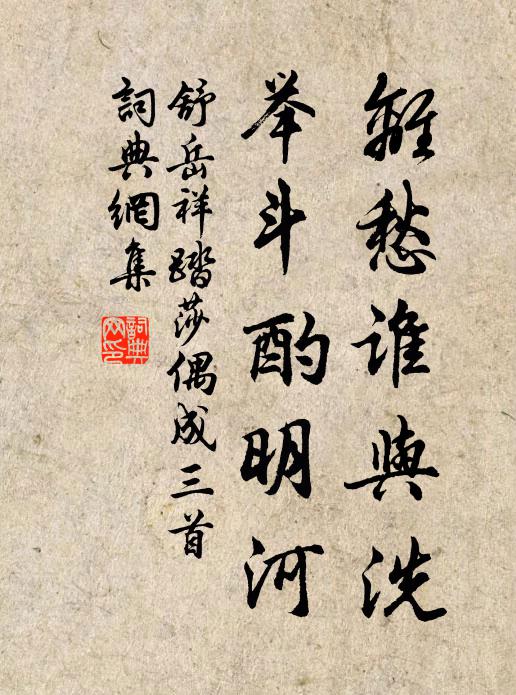 離愁誰與洗
举斗酌明河
舒岳祥踏莎偶成三首
詞典網集
詞典
网印